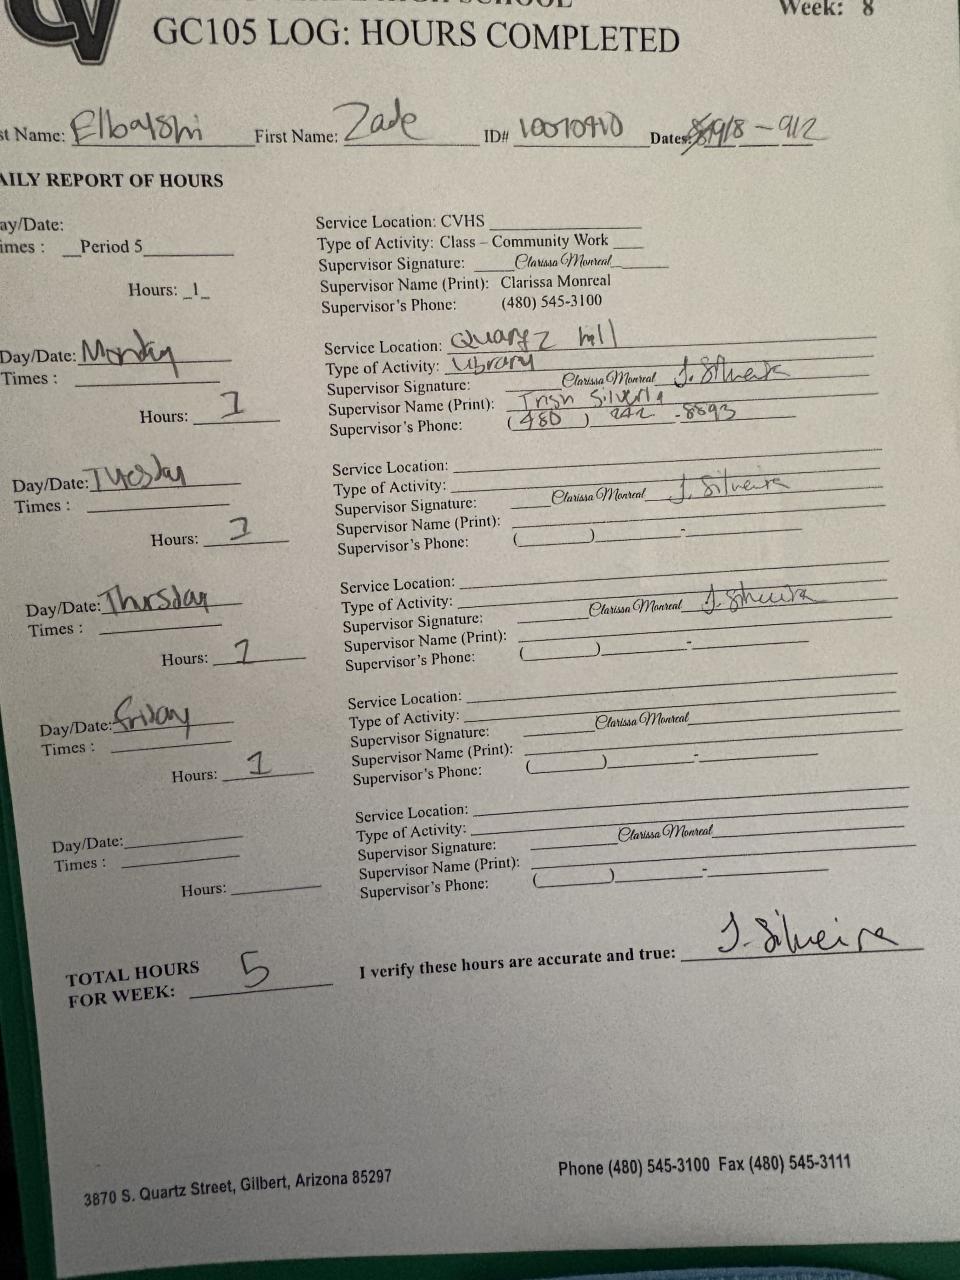 Week: 8
GC105 LOG: HOURS COMPLETED
st Name: Elbayshi First Name: Zade ID# 10070910 Dates: 9/8 - 9/2
AILY REPORT OF HOURS
ay/Date:
imes : Period 5
Hours: 1
Service Location: CVHS
Type of Activity: Class – Community Work
Supervisor Signature: Clarissa Monreal
Supervisor Name (Print): Clarissa Monreal
Supervisor's Phone: (480) 545-3100
Day/Date: Monday
Times :
Hours: 1
Service Location: Quartz hill
Type of Activity: Library
Supervisor Signature: Clarissa Monreal J. Silveira
Supervisor Name (Print): Trish
Supervisor's Phone: (480) 242-8893
Day/Date: Tuesday
Times :
Hours: 1
Service Location:
Type of Activity:
Supervisor Signature: Clarissa Monreal J. Silveira
Supervisor Name (Print):
Supervisor's Phone: ( ) -
Day/Date: Thursday
Times :
Hours: 1
Service Location:
Type of Activity:
Supervisor Signature: Clarissa Monreal J. Silveira
Supervisor Name (Print):
Supervisor's Phone: ( ) -
Day/Date: friday
Times :
Hours: 1
Service Location:
Type of Activity:
Supervisor Signature: Clarissa Monreal
Supervisor Name (Print):
Supervisor's Phone: ( ) -
Day/Date:
Times :
Hours:
Service Location:
Type of Activity:
Supervisor Signature: Clarissa Monreal
Supervisor Name (Print):
Supervisor's Phone: ( ) -
TOTAL HOURS
FOR WEEK: 5
I verify these hours are accurate and true: J. Silveira
3870 S. Quartz Street, Gilbert, Arizona 85297
Phone (480) 545-3100 Fax (480) 545-3111